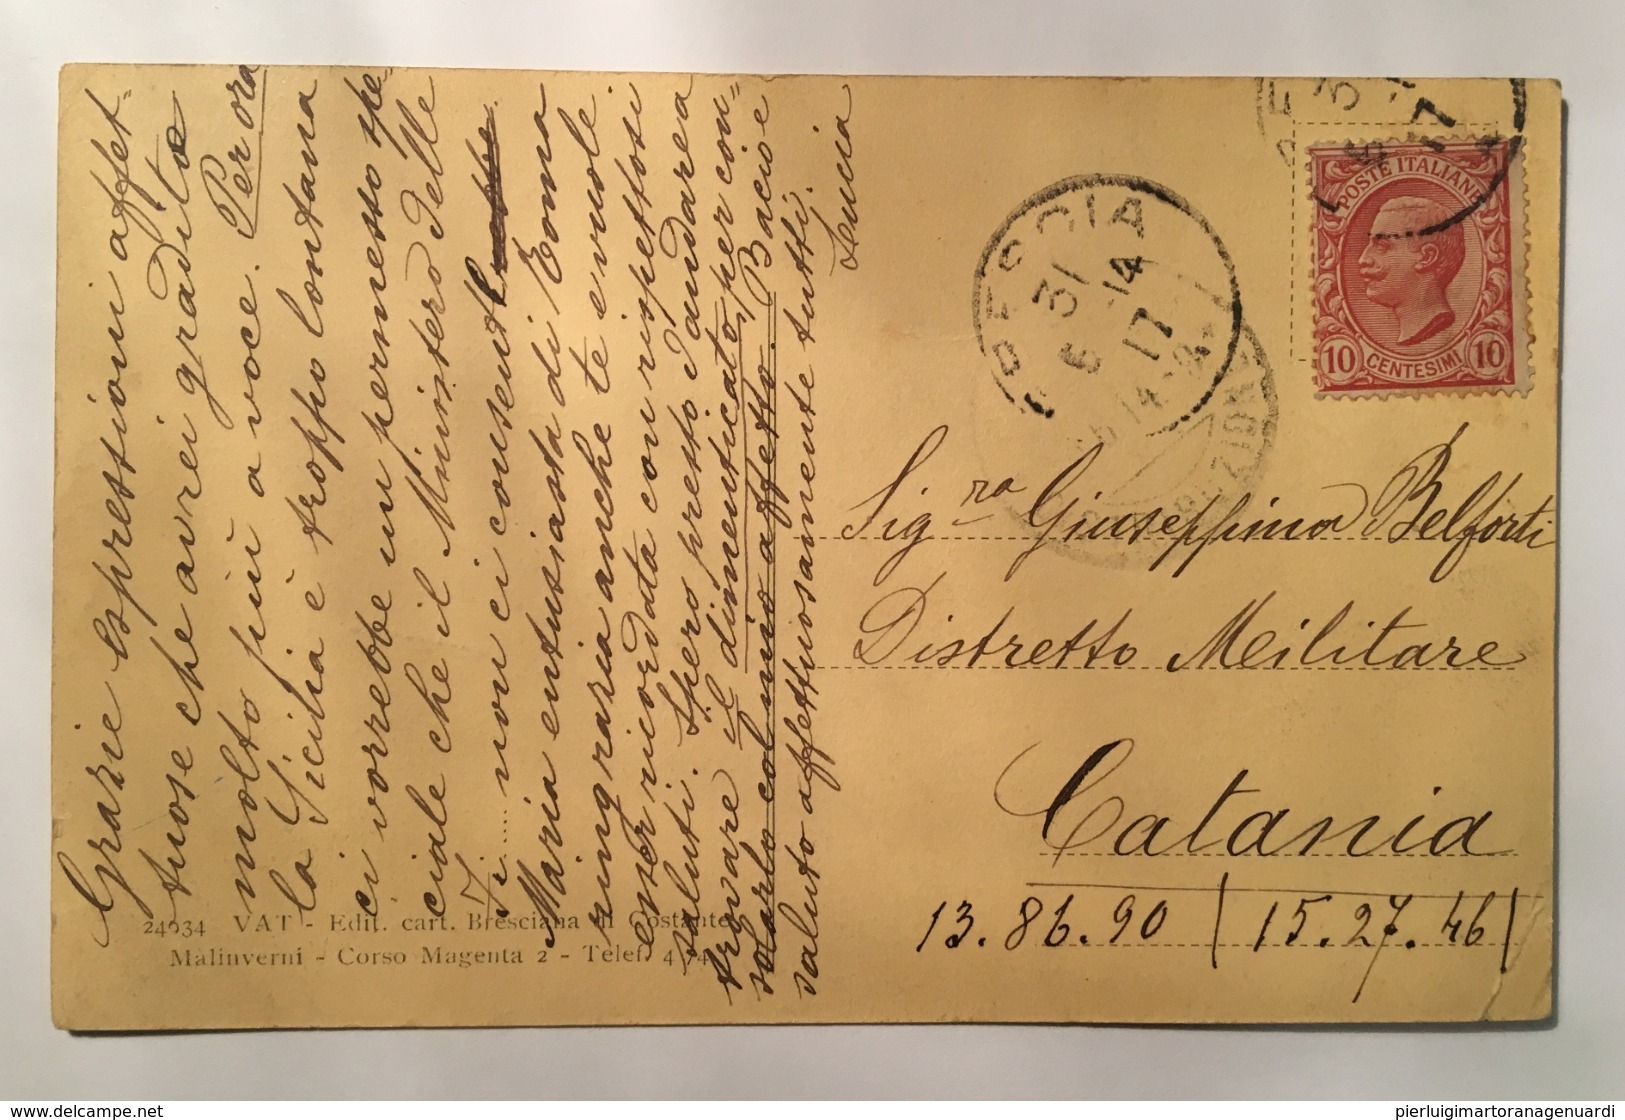 Grazie espressioni affet=
tuose che avrei gradito
molto più a voce. Per ora
la Sicilia è troppo lontana
ci vorrebbe un permesso spe=
ciale che il Ministero delle
non ci consente
Maria entusiasta di Roma
ringrazia anche te e vuole
esser ricordata con rispettosi
saluti. Spero presto d'andare a
trovare il dimenticato per con=
solarlo col mio affetto. Bacio e
saluto affettuosamente tutti.
Lucia
24034 VAT - Edit. cart. Bresciana di Costante
Malinverni - Corso Magenta 2 - Telef. 4 74
BRESCIA
31
6 14
17
POSTE ITALIANE
10 CENTESIMI 10
Sig.ra Giuseppina Belforti
Distretto Militare
Catania
13.86.90 | 15.27.46 |
delcampe.net
pierluigimartoranagenuardi